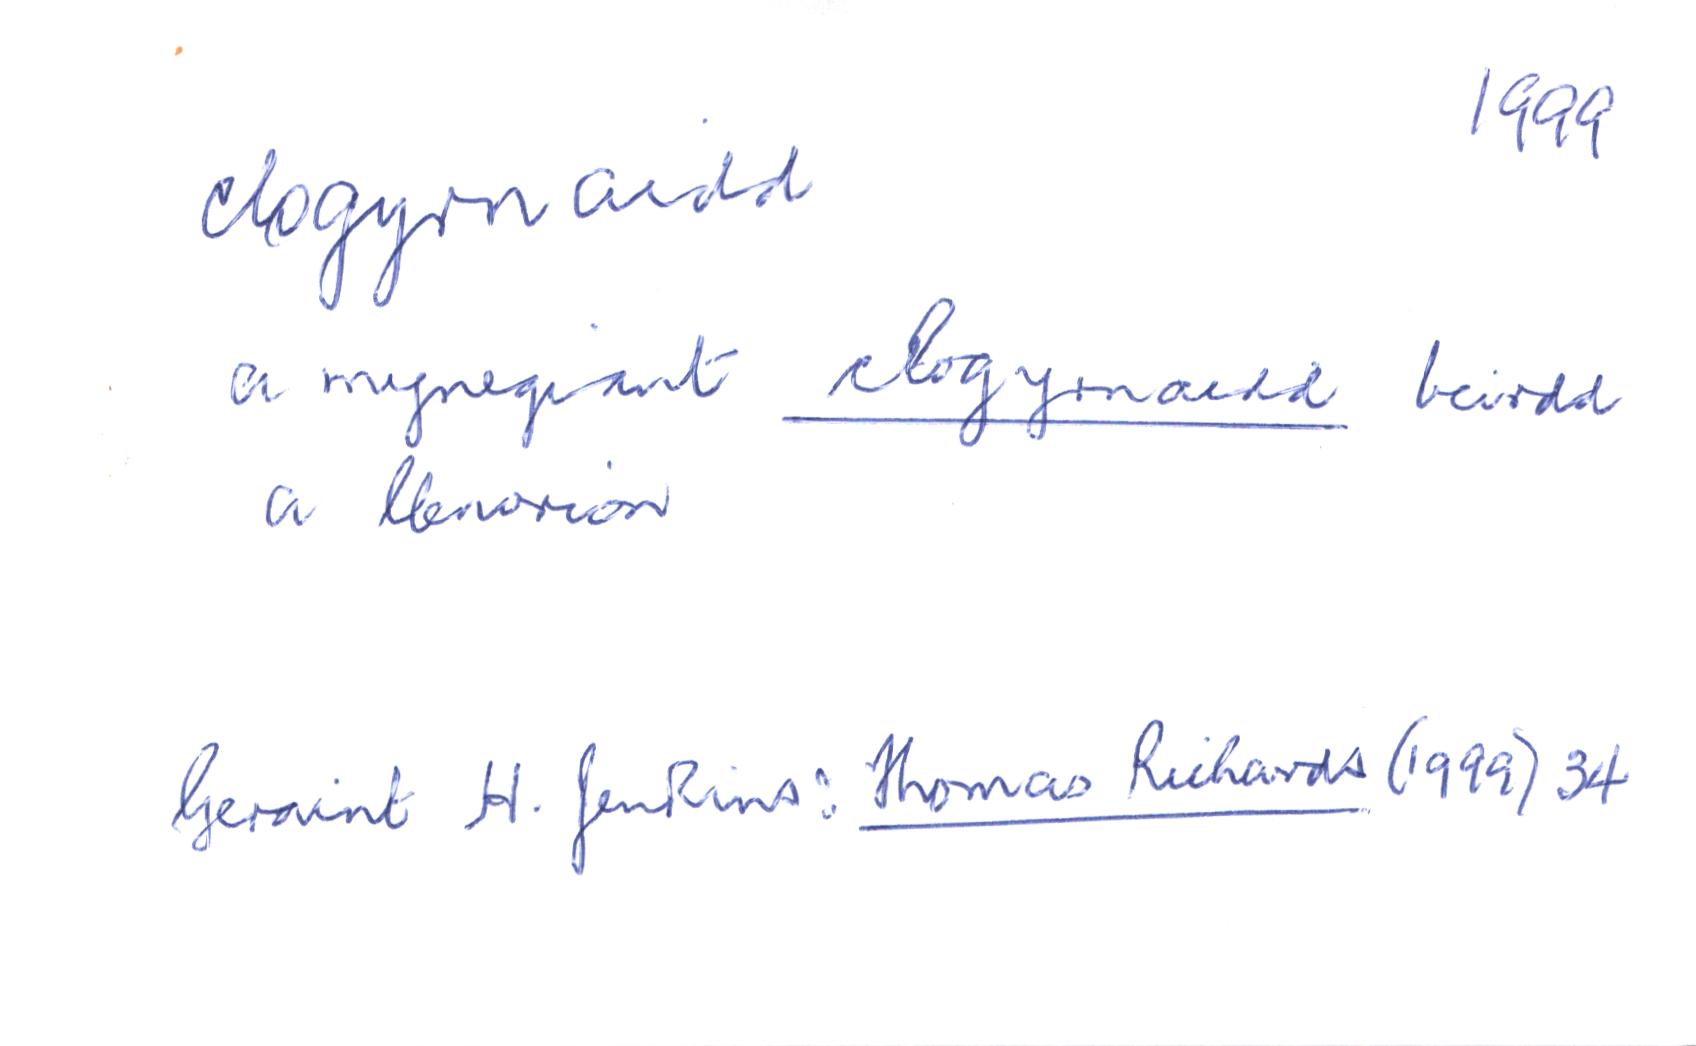 1999
clogyrnaidd
a mynegiant clogyrnaidd beirdd
a llenorion
Geraint H. Jenkins: Thomas Richards (1999) 34